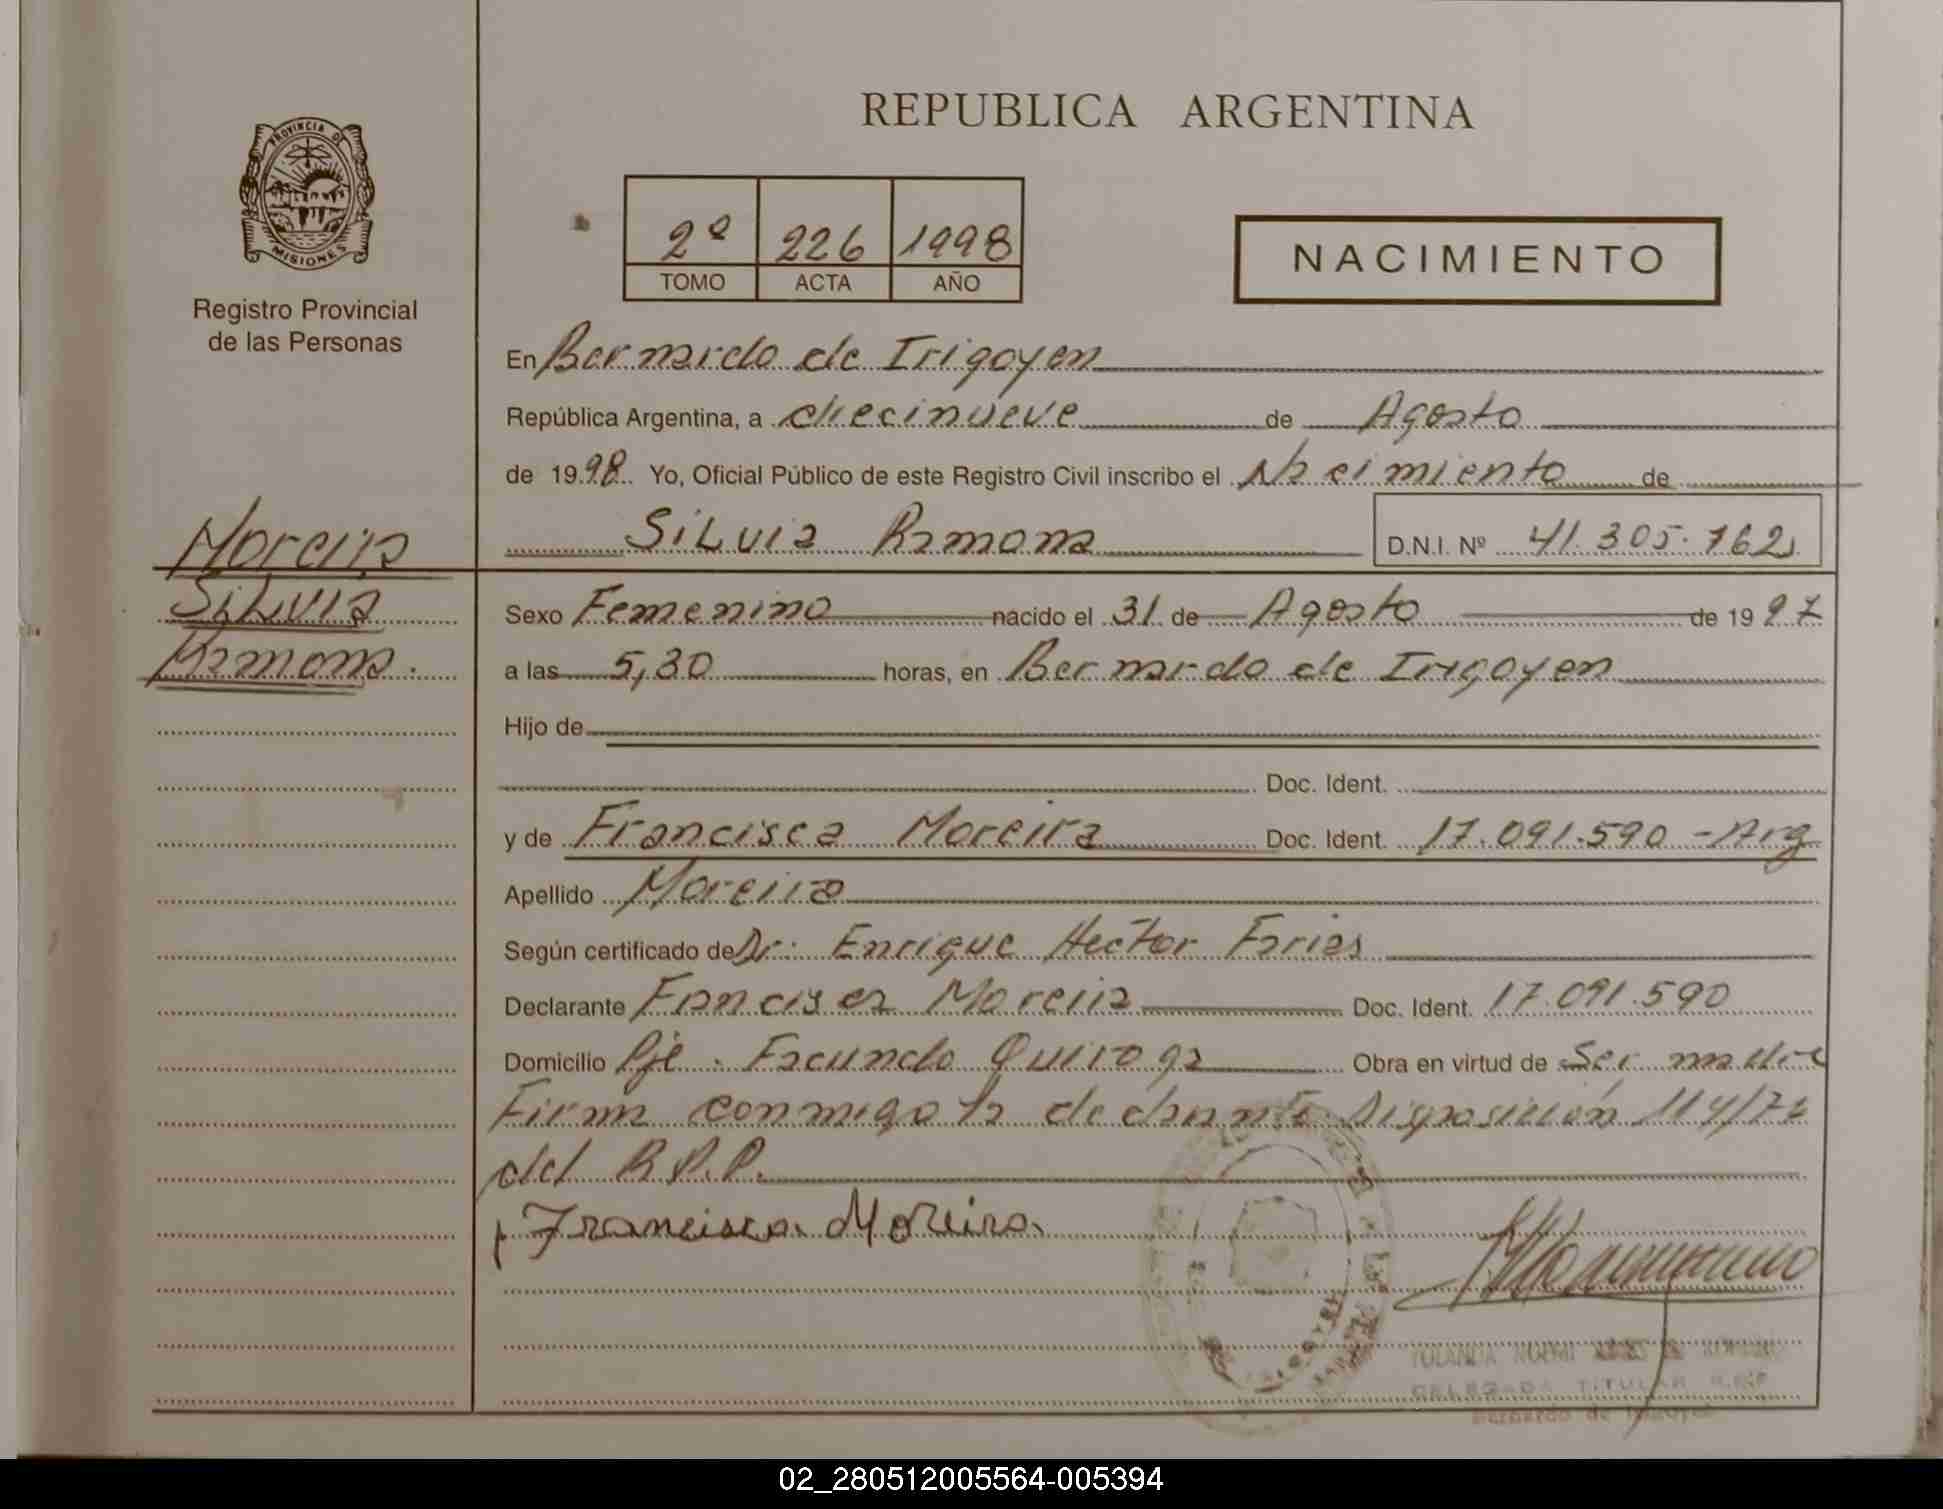 REPUBLICA ARGENTINA
PROVINCIA DE MISIONES
Registro Provincial
de las Personas
2º 226 1998
TOMO ACTA AÑO
NACIMIENTO
En Bernardo de Irigoyen
República Argentina, a diecinueve de Agosto
de 1998. Yo, Oficial Público de este Registro Civil inscribo el Nacimiento de
Silvia Ramona D.N.I. Nº 41.305.762
Moreira
Silvia
Ramona.
Sexo Femenino nacido el 31 de Agosto de 1997
a las 5,30 horas, en Bernardo de Irigoyen
Hijo de
Doc. Ident.
y de Francisca Moreira Doc. Ident. 17.091.590 - Arg
Apellido Moreira
Según certificado de Dr. Enrique Hector Farias
Declarante Francisca Moreira Doc. Ident. 17.091.590
Domicilio Pje. Facundo Quiroga Obra en virtud de Ser madre
Firma conmigo la declarante Disposición
del R.P.P.
Francisca Moreira
DELEGADA TITULAR R.P.P
Bernardo de Irigoyen
02_280512005564-005394